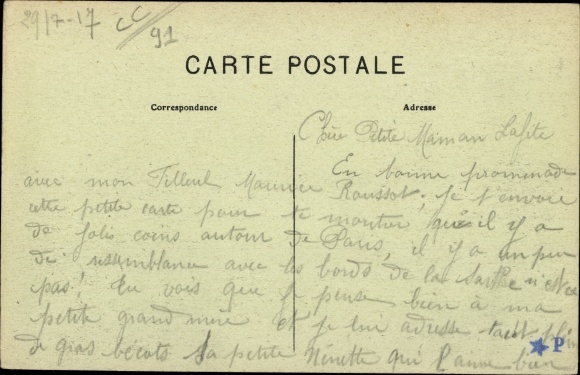 29/7-17 CC/91
CARTE POSTALE
Correspondance
Adresse
Chère Petite Maman Lafite
En bonne promenade
avec mon Filleul Maurice Roussot, je t'envoie
cette petite carte pour te montrer qu'il y a
de jolis coins autour de Paris, il y a un peu
de ressemblance avec les bords de la Sarthe n'est ce
pas! Tu vois que je pense bien à ma
petite grand mère et je lui adresse tout plein
de gros bécots Sa petite Nénette qui l'aime bien
P